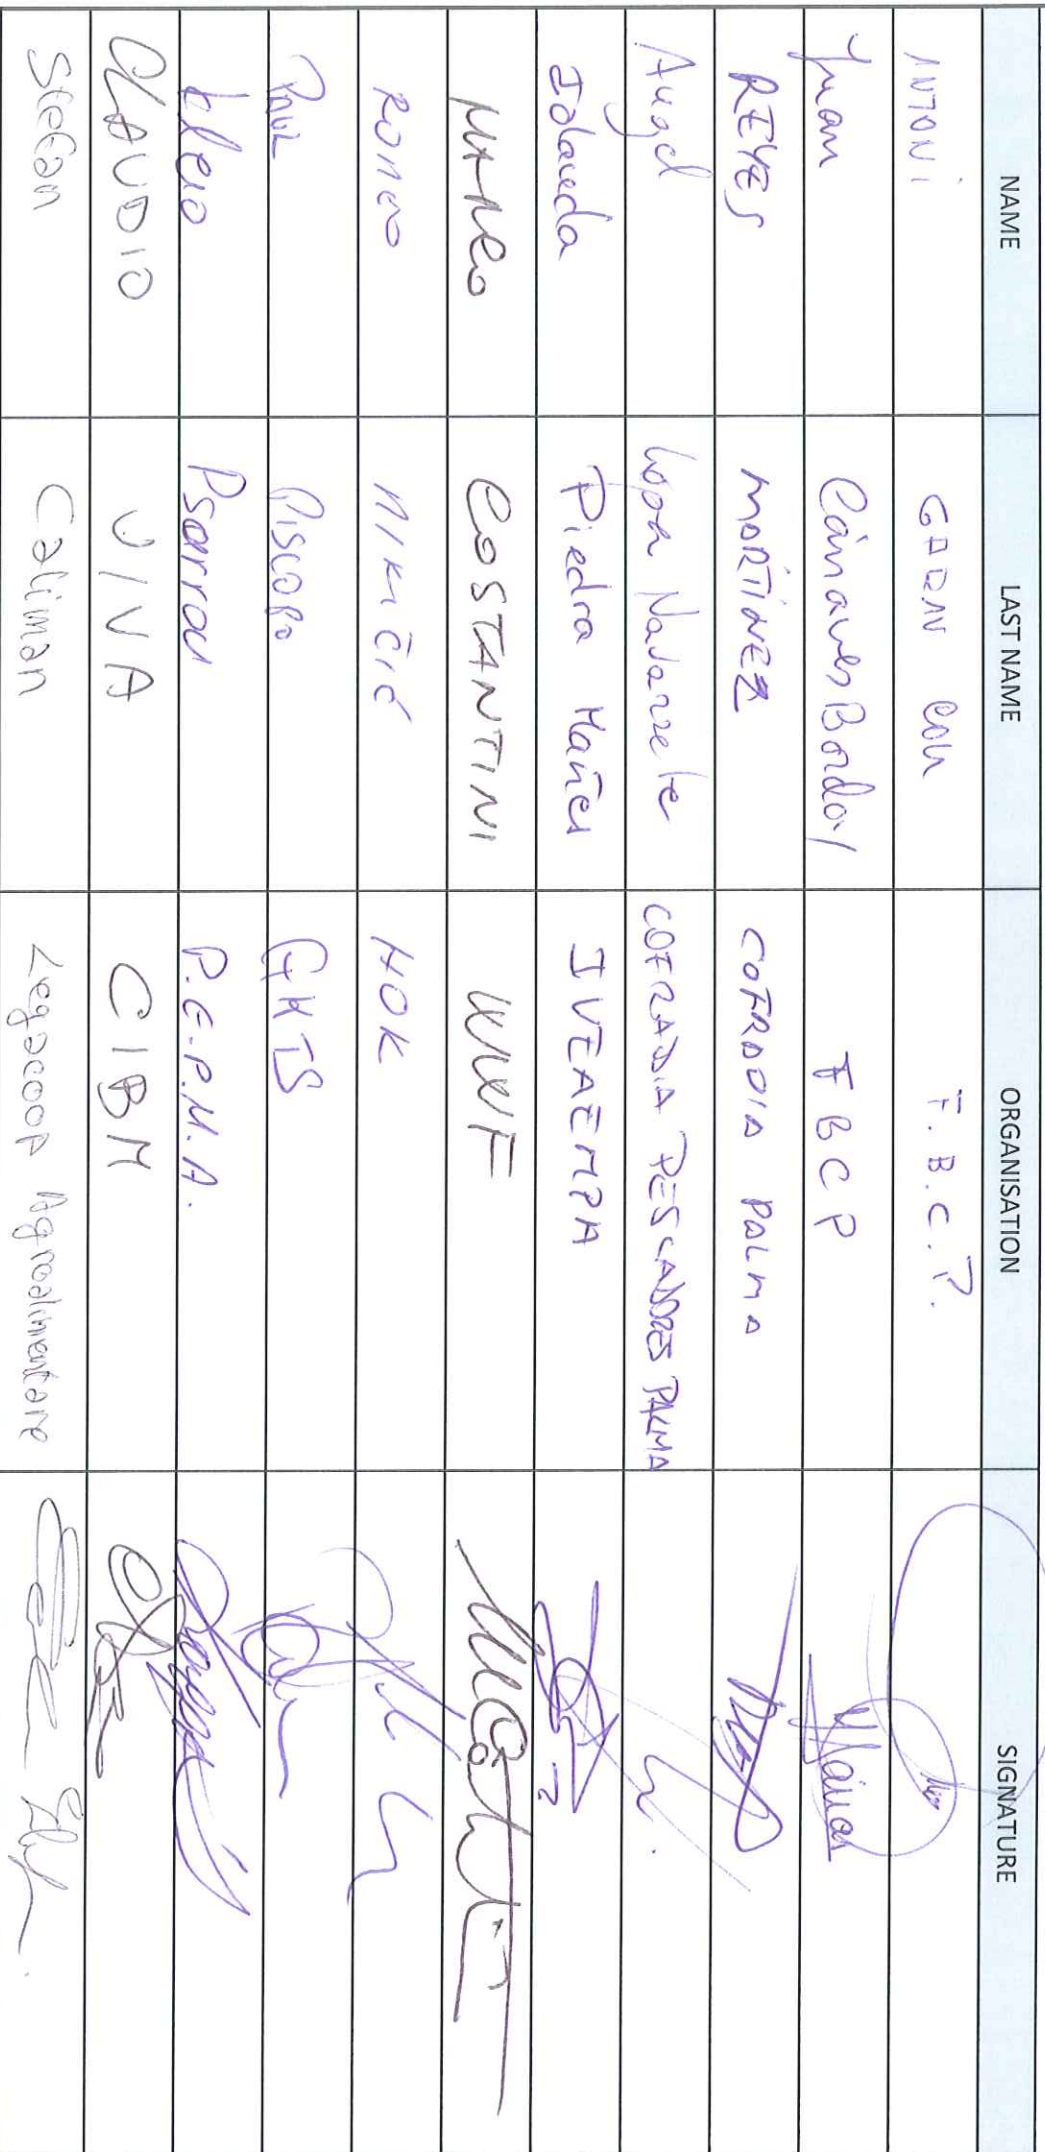 NAME LAST NAME ORGANISATION SIGNATURE
ANTONI GARAU COLL F.B.C.P.
Juan Cànaves Bordoy FBCP
REYES MARTÍNEZ COFRADIA PALMA
Angel COFRADIA PESCADORES PALMA
Iolanda Piedra Mañes IVEAEMPA
MARCO COSTANTINI WWF
ROMEO MIKIČIĆ HOK
Paul Piscopo GKTS
kleio Psarrou P.E.P.M.A.
CLAUDIO VIVA CIBM
Stefan Caliman Legacoop Agroalimentare